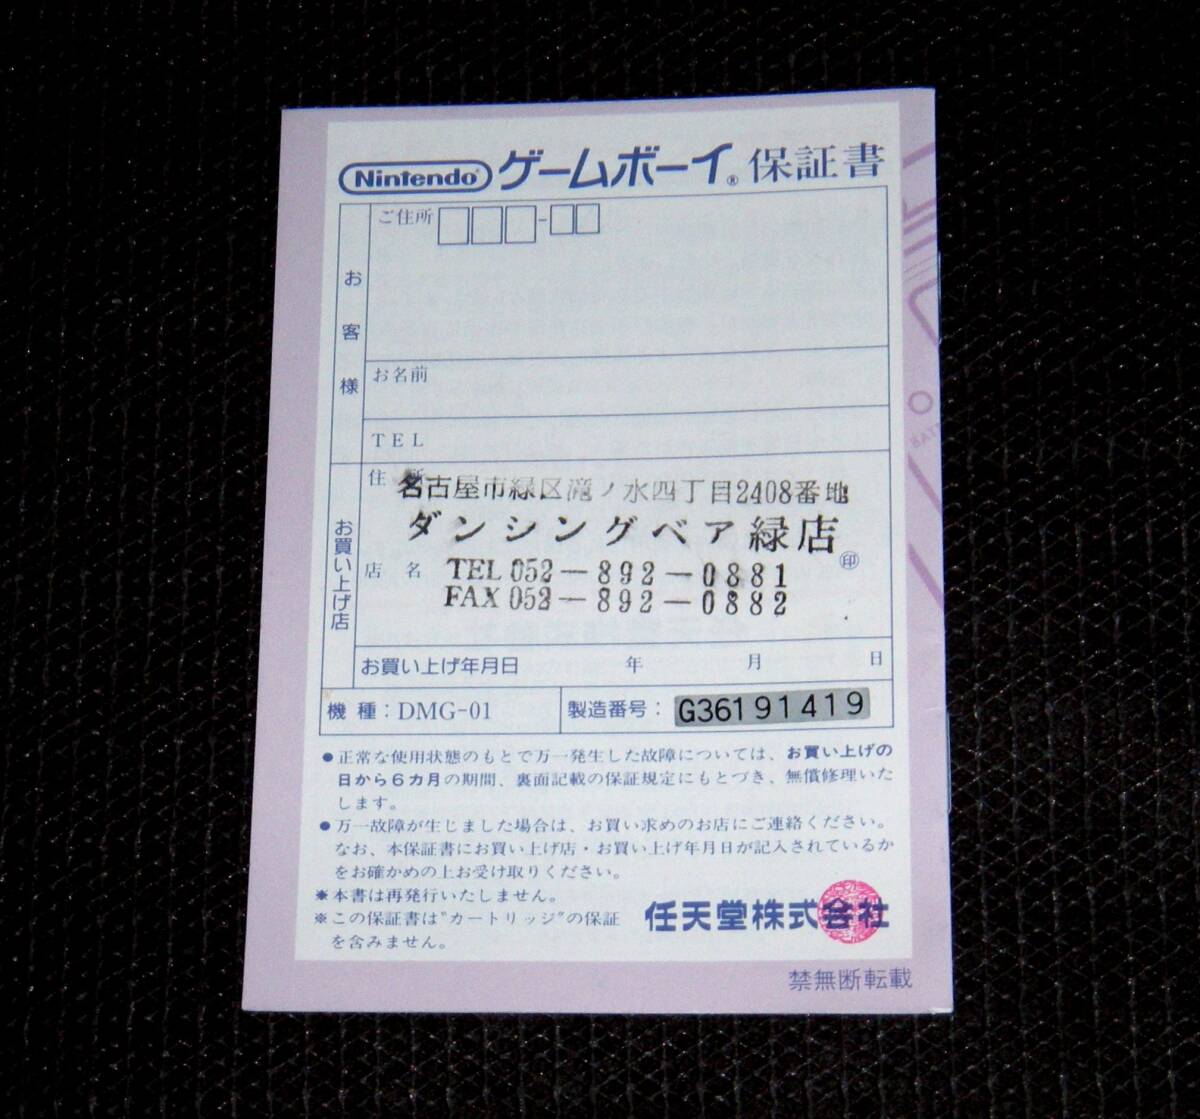 Nintendo® ゲームボーイ® 保証書
お客様
ご住所 □□□-□□
お名前
TEL
お買い上げ店
住所
名古屋市緑区滝ノ水四丁目2408番地
ダンシングベア緑店
店名
㊞
TEL 052-892-0881
FAX 052-892-0882
お買い上げ年月日 年 月 日
機種：DMG-01 製造番号： G36191419
●正常な使用状態のもとで万一発生した故障については、お買い上げの
日から6カ月の期間、裏面記載の保証規定にもとづき、無償修理いた
します。
●万一故障が生じました場合は、お買い求めのお店にご連絡ください。
なお、本保証書にお買い上げ店・お買い上げ年月日が記入されているか
をお確かめの上お受け取りください。
※本書は再発行いたしません。
※この保証書は"カートリッジ"の保証
を含みません。
任天堂株式会社
禁無断転載
BATT